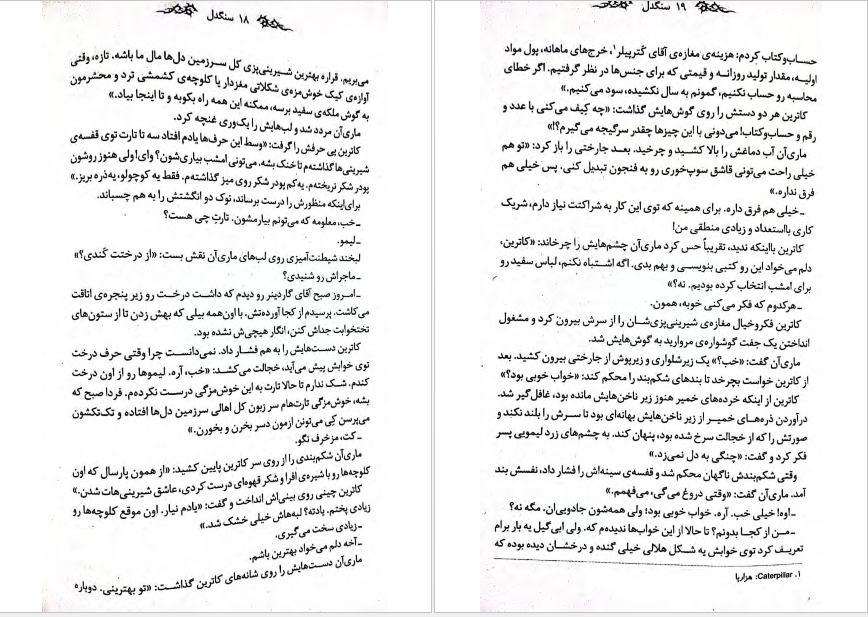 ۱۸ سنگدل
می‌بریم. قراره بهترین شیرینی‌پزی کل سرزمین دل‌ها مال ما باشه. تازه، وقتی
آوازه‌ی کیک خوش‌مزه‌ی شکلاتی مغزدار یا کلوچه‌ی کشمشی ترد و محشرمون
به گوش ملکه‌ی سفید برسه، ممکنه این همه راه بکوبه و تا اینجا بیاد.»
ماری‌آن مردد شد و لب‌هایش را یک‌وری غنچه کرد.
کاترین پی حرفش را گرفت: «وسط این حرف‌ها یادم افتاد سه تا تارت توی قفسه‌ی
شیرینی‌ها گذاشته‌م تا خنک بشه. می‌تونی امشب بیاری‌شون؟ وای! ولی هنوز روشون
پودر شکر نریخته‌م. یه‌کم پودر شکر روی میز گذاشته‌م. فقط یه کوچولو، یه‌ذره بریز.»
برای‌اینکه منظورش را درست برساند، نوک دو انگشتش را به هم چسباند.
ـ خب، معلومه که می‌تونم بیارمشون. تارتِ چی هست؟
ـ لیمو.
لبخند شیطنت‌آمیزی روی لب‌های ماری‌آن نقش بست: «از درختت کَندی؟»
ـ ماجراش رو شنیدی؟
ـ امـروز صبح آقای گاردینر رو دیدم که داشت درخـت رو زیر پنجره‌ی اتاقت
می‌کاشت. پرسیدم از کجا آورده‌تش. با اون‌همه بیلی که بهش زدن تا از ستون‌های
تختخوابت جداش کنن، انگار هیچی‌ش نشده بود.
کاترین دست‌هایش را به هم فشار داد. نمی‌دانست چرا وقتی حرف درخت
توی خوابش پیش می‌آید، خجالت می‌کشد: «خب، آره. لیموها رو از اون درخت
کندم. شک ندارم تا حالا تارت به این خوش‌مزگی درست نکرده‌م. فردا صبح که
بشه، خوش‌مزگی تارت‌هام سر زبون کل اهالی سرزمین دل‌ها افتاده و تک‌تکشون
می‌پرسن کِی می‌تونن ازمون دسر بخرن و بخورن.»
ـ کت، مزخرف نگو.
ماری‌آن شکم‌بندی را از روی سر کاترین پایین کشید: «از همون پارسال که اون
کلوچه‌ها رو با شیره‌ی افرا و شکر قهوه‌ای درست کردی، عاشق شیرینی‌هات شدن.»
کاترین چینی روی بینی‌اش انداخت و گفت: «یادم نیار. اون موقع کلوچه‌ها رو
زیادی پختم. یادته؟ لبه‌هاش خیلی خشک شد.»
ـ زیادی سخت می‌گیری.
ـ آخه دلم می‌خواد بهترین باشم.
ماری‌آن دست‌هایش را روی شانه‌های کاترین گذاشت: «تو بهترینی. دوباره
۱۹ سنگدل
حساب‌وکتاب کردم: هزینه‌ی مغازه‌ی آقای کَترپیلر۱، خرج‌های ماهانه، پول مواد
اولیـه، مقدار تولید روزانـه و قیمتی که برای جنس‌ها در نظر گرفتیم. اگر خطای
محاسبه رو حساب نکنیم، گمونم به سال نکشیده، سود می‌کنیم.»
کاترین هر دو دستش را روی گوش‌هایش گذاشت: «چه کِیف می‌کنی با عدد و
رقم و حساب‌وکتاب! می‌دونی با این چیزها چقدر سرگیجه می‌گیرم؟!»
ماری‌آن آب دماغش را بالا کشـید و چرخید. بعـد جارختی را باز کرد: «تو هم
خیلی راحت می‌تونی قاشق سوپ‌خوری رو به فنجون تبدیل کنی. پس خیلی هم
فرق نداره.»
ـ خیلی هم فرق داره. برای همینه که توی این کار به شراکتت نیاز دارم، شریک
کاری بااستعداد و زیادی منطقی من!
کاترین بااینکه ندید، تقریباً حس کرد ماری‌آن چشم‌هایش را چرخاند: «کاترین،
دلم می‌خواد این رو کتبی بنویسـی و بهم بدی. اگه اشـتباه نکنم، لباس سفید رو
برای امشب انتخاب کرده بودیم. نه؟»
ـ هرکدوم که فکر می‌کنی خوبه، همون.
کاترین فکروخیال مغازه‌ی شیرینی‌پزی‌شـان را از سرش بیرون کرد و مشغول
انداختن یک جفت گوشواره‌ی مروارید به گوش‌هایش شد.
ماری‌آن گفت: «خب؟» یک زیرشلواری و زیرپوش از جارختی بیرون کشید. بعد
از کاترین خواست بچرخد تا بندهای شکم‌بند را محکم کند: «خواب خوبی بود؟»
کاترین از اینکه خرده‌های خمیر هنوز زیر ناخن‌هایش مانده بود، غافل‌گیر شد.
درآوردن ذره‌هـای خمیـر از زیر ناخن‌هایش بهانه‌ای بود تا سـرش را بلند نکند و
صورتش را که از خجالت سرخ شده بود، پنهان کند. به چشم‌های زرد لیمویی پسر
فکر کرد و گفت: «چنگی به دل نمی‌زد.»
وقتی شکم‌بندش ناگهان محکم شد و قفسه‌ی سینه‌اش را فشار داد، نفسش بند
آمد. ماری‌آن گفت: «وقتی دروغ می‌گی، می‌فهمم.»
ـ اوه! خیلی خب. آره. خواب خوبی بود؛ ولی همه‌شون جادویی‌ان. مگه نه؟
ـ مـن از کجـا بدونم؟ تا حالا از این خواب‌ها ندیده‌م که. ولی ابی‌گیل یه بار برام
تعریـف کرد توی خوابش یه شـکل هلالی خیلی گنده و درخشـان دیده بوده که
۱. Caterpillar: هزارپا